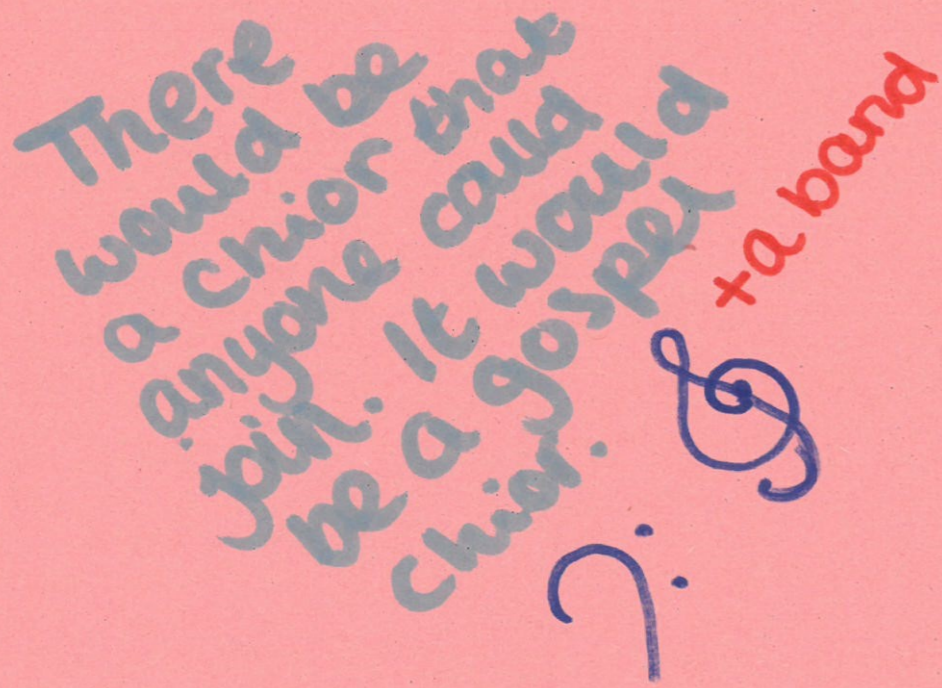 There
would be
a chior that
anyone could
join. It would
be a gospel
chior.
+a band